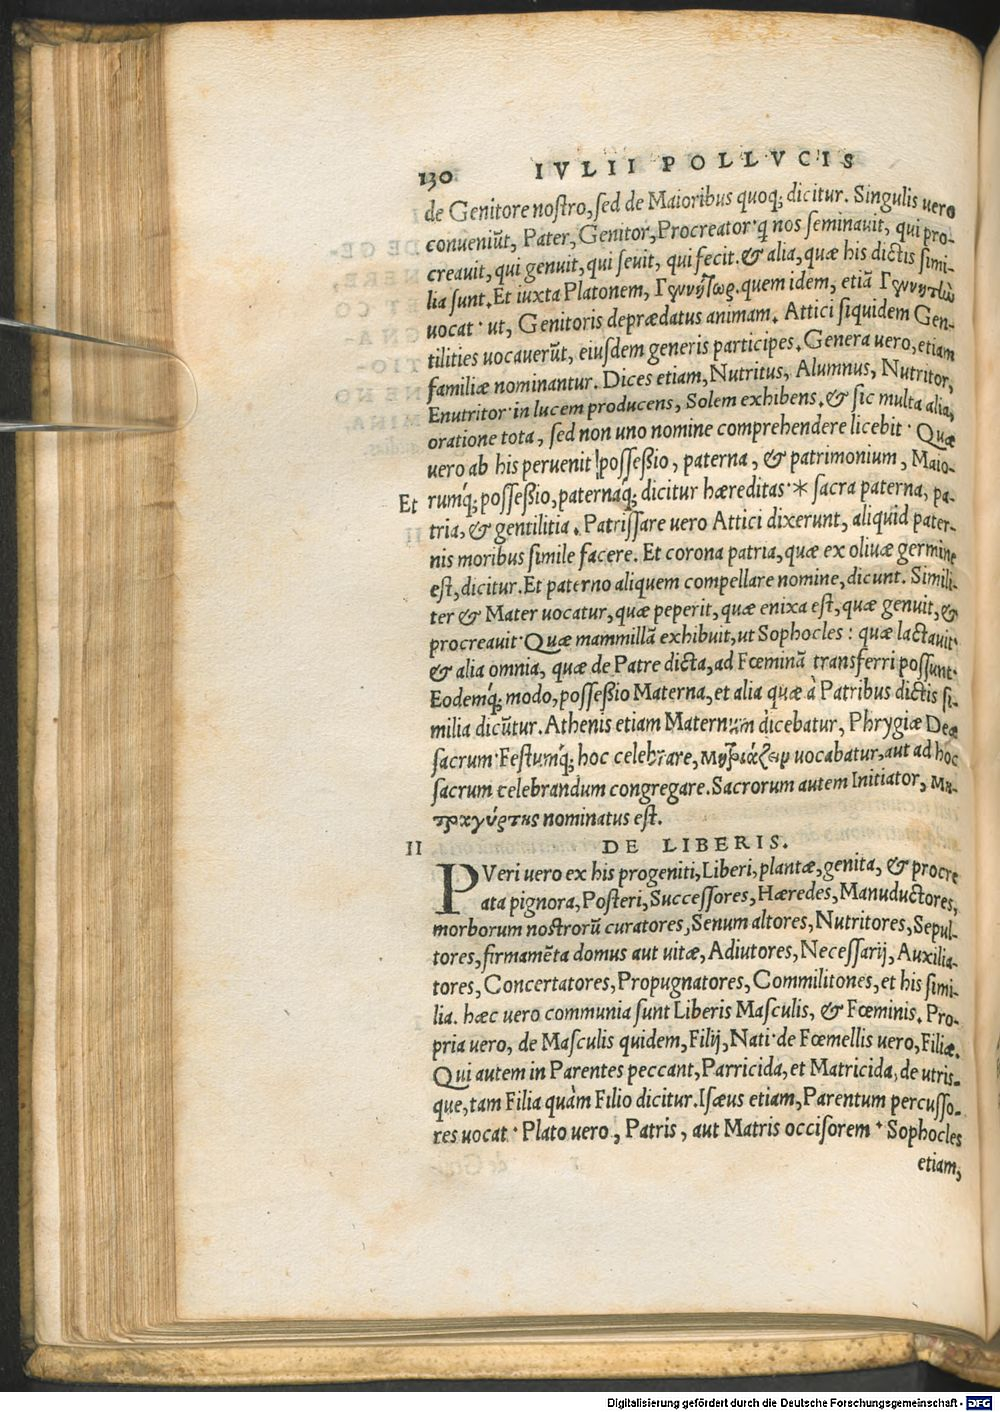 130 IVLII POLLVCIS
de Genitore nostro, sed de Maioribus quoq; dicitur. Singulis uero
conueniũt, Pater, Genitor, Procreator· q nos seminauit, qui pro-
creauit, qui genuit, qui seuit, qui fecit. & alia, quæ his dictis simi-
lia sunt. Et iuxta Platonem, Γεννήτωρ. quem idem, etiã Γεννητῶν
uocat· ut, Genitoris deprædatus animam. Attici siquidem Gen-
tilities uocauerũt, eiusdem generis participes. Genera uero, etiam
familiæ nominantur. Dices etiam, Nutritus, Alumnus, Nutritor,
Enutritor· in lucem producens, Solem exhibens. & sic multa alia,
oratione tota, sed non uno nomine comprehendere licebit· Quæ
uero ab his peruenit possessio, paterna, & patrimonium, Maio-
Et rumq́; possessio, paternaq́; dicitur hæreditas· * sacra paterna, pa-
tria, & gentilitia. Patrissare uero Attici dixerunt, aliquid pater-
nis moribus simile facere. Et corona patria, quæ ex oliuæ germine
est, dicitur. Et paterno aliquem compellare nomine, dicunt. Simili-
ter & Mater uocatur, quæ peperit, quæ enixa est, quæ genuit, &
procreauit· Quæ mammillã exhibuit, ut Sophocles: quæ lactauit·
& alia omnia, quæ de Patre dicta, ad Fœminã transferri possunt·
Eodemq́; modo, possessio Materna, et alia quæ à Patribus dictis si-
milia dicũtur. Athenis etiam Maternum dicebatur, Phrygiæ Deæ
sacrum· Festumq́; hoc celebrare, μητριάζειν uocabatur, aut ad hoc
sacrum celebrandum congregare. Sacrorum autem Initiator, Μη-
τραγύρτης nominatus est.
II DE LIBERIS.
PVeri uero ex his progeniti, Liberi, plantæ, genita, & procre
ata pignora, Posteri, Successores, Hæredes, Manuductores,
morborum nostrorũ curatores, Senum altores, Nutritores, Sepul-
tores, firmamẽta domus aut uitæ, Adiutores, Necessarij, Auxilia-
tores, Concertatores, Propugnatores, Commilitones, et his simi-
lia. hæc uero communia sunt Liberis Masculis, & Fœminis. Pro-
pria uero, de Masculis quidem, Filij, Nati· de Fœmellis uero, Filiæ.
Qui autem in Parentes peccant, Parricida, et Matricida, de utris-
que, tam Filia quàm Filio dicitur. Isæus etiam, Parentum percusso-
res uocat· Plato uero, Patris, aut Matris occisorem· Sophocles
etiam,
Digitalisierung gefördert durch die Deutsche Forschungsgemeinschaft - DFG